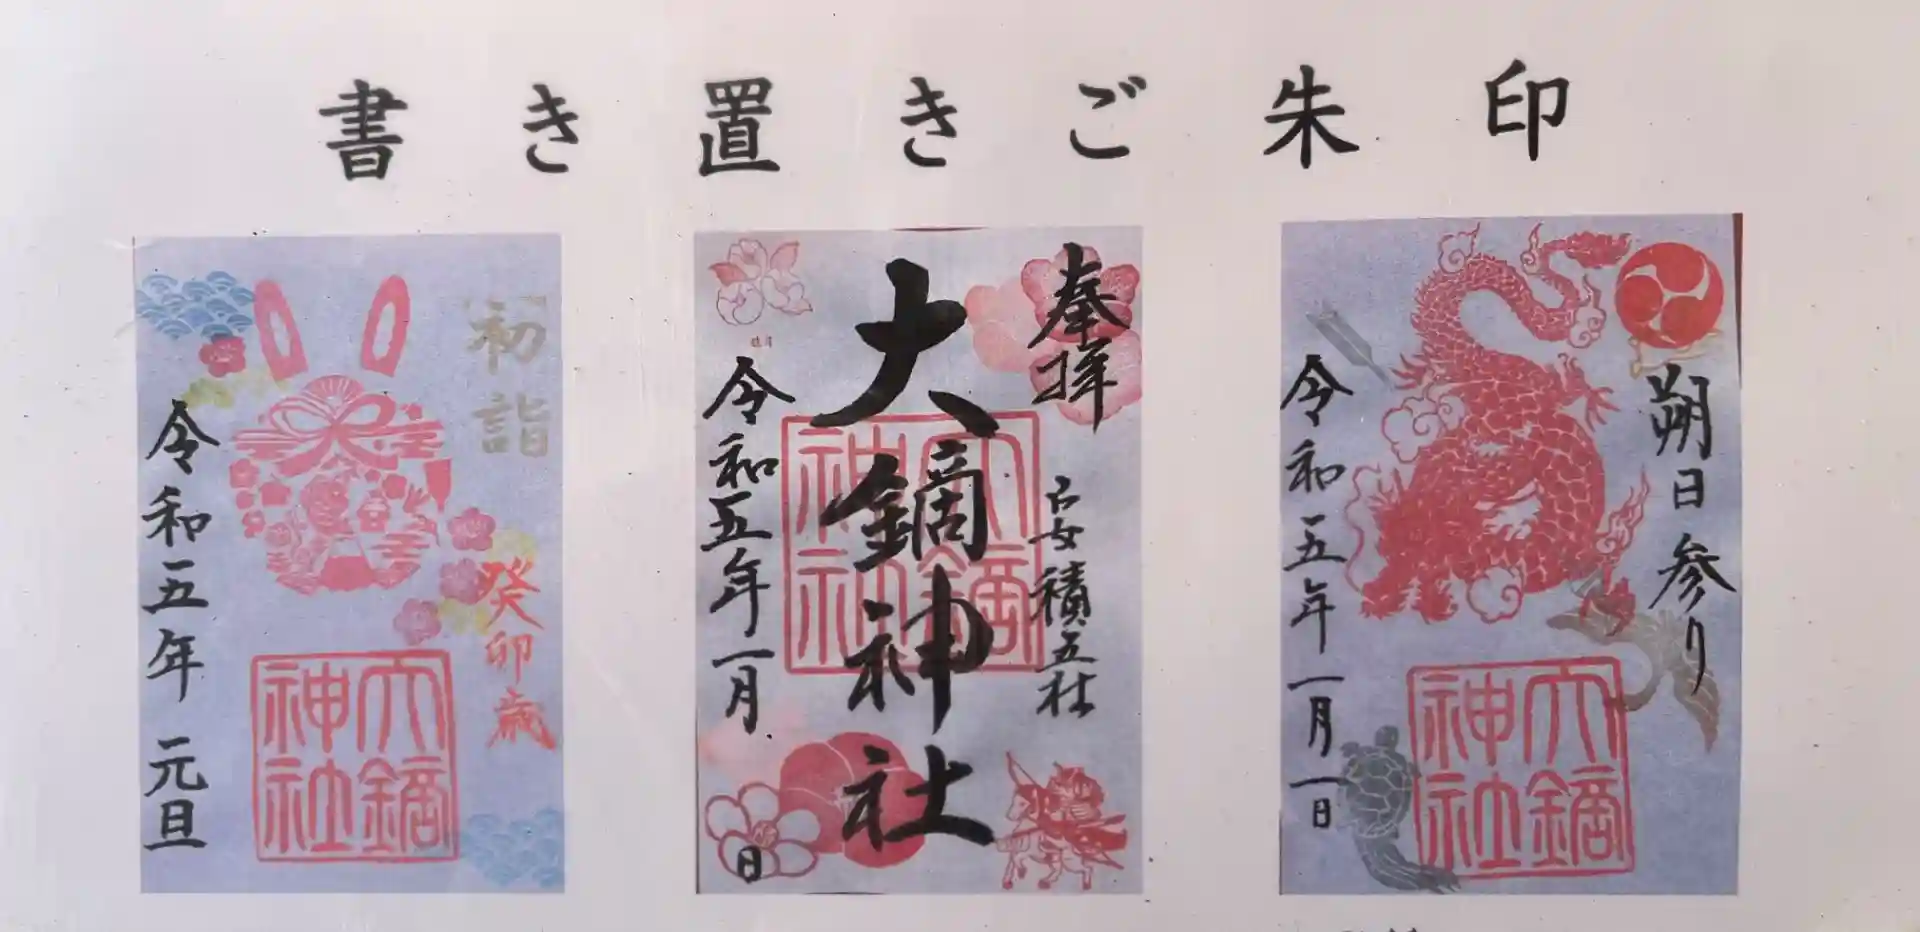 書き置きご朱印
初詣
癸卯歳
令和五年 元旦
大鏑神社
奉拝
安積五社
大鏑神社
令和五年一月 日
大鏑神社
朔日参り
令和五年一月一日
大鏑神社